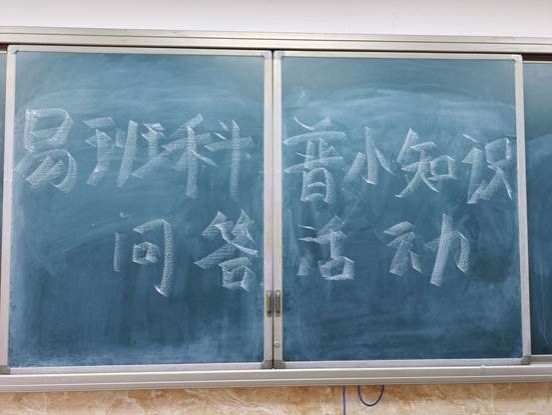 易班科普小知识
问答活动